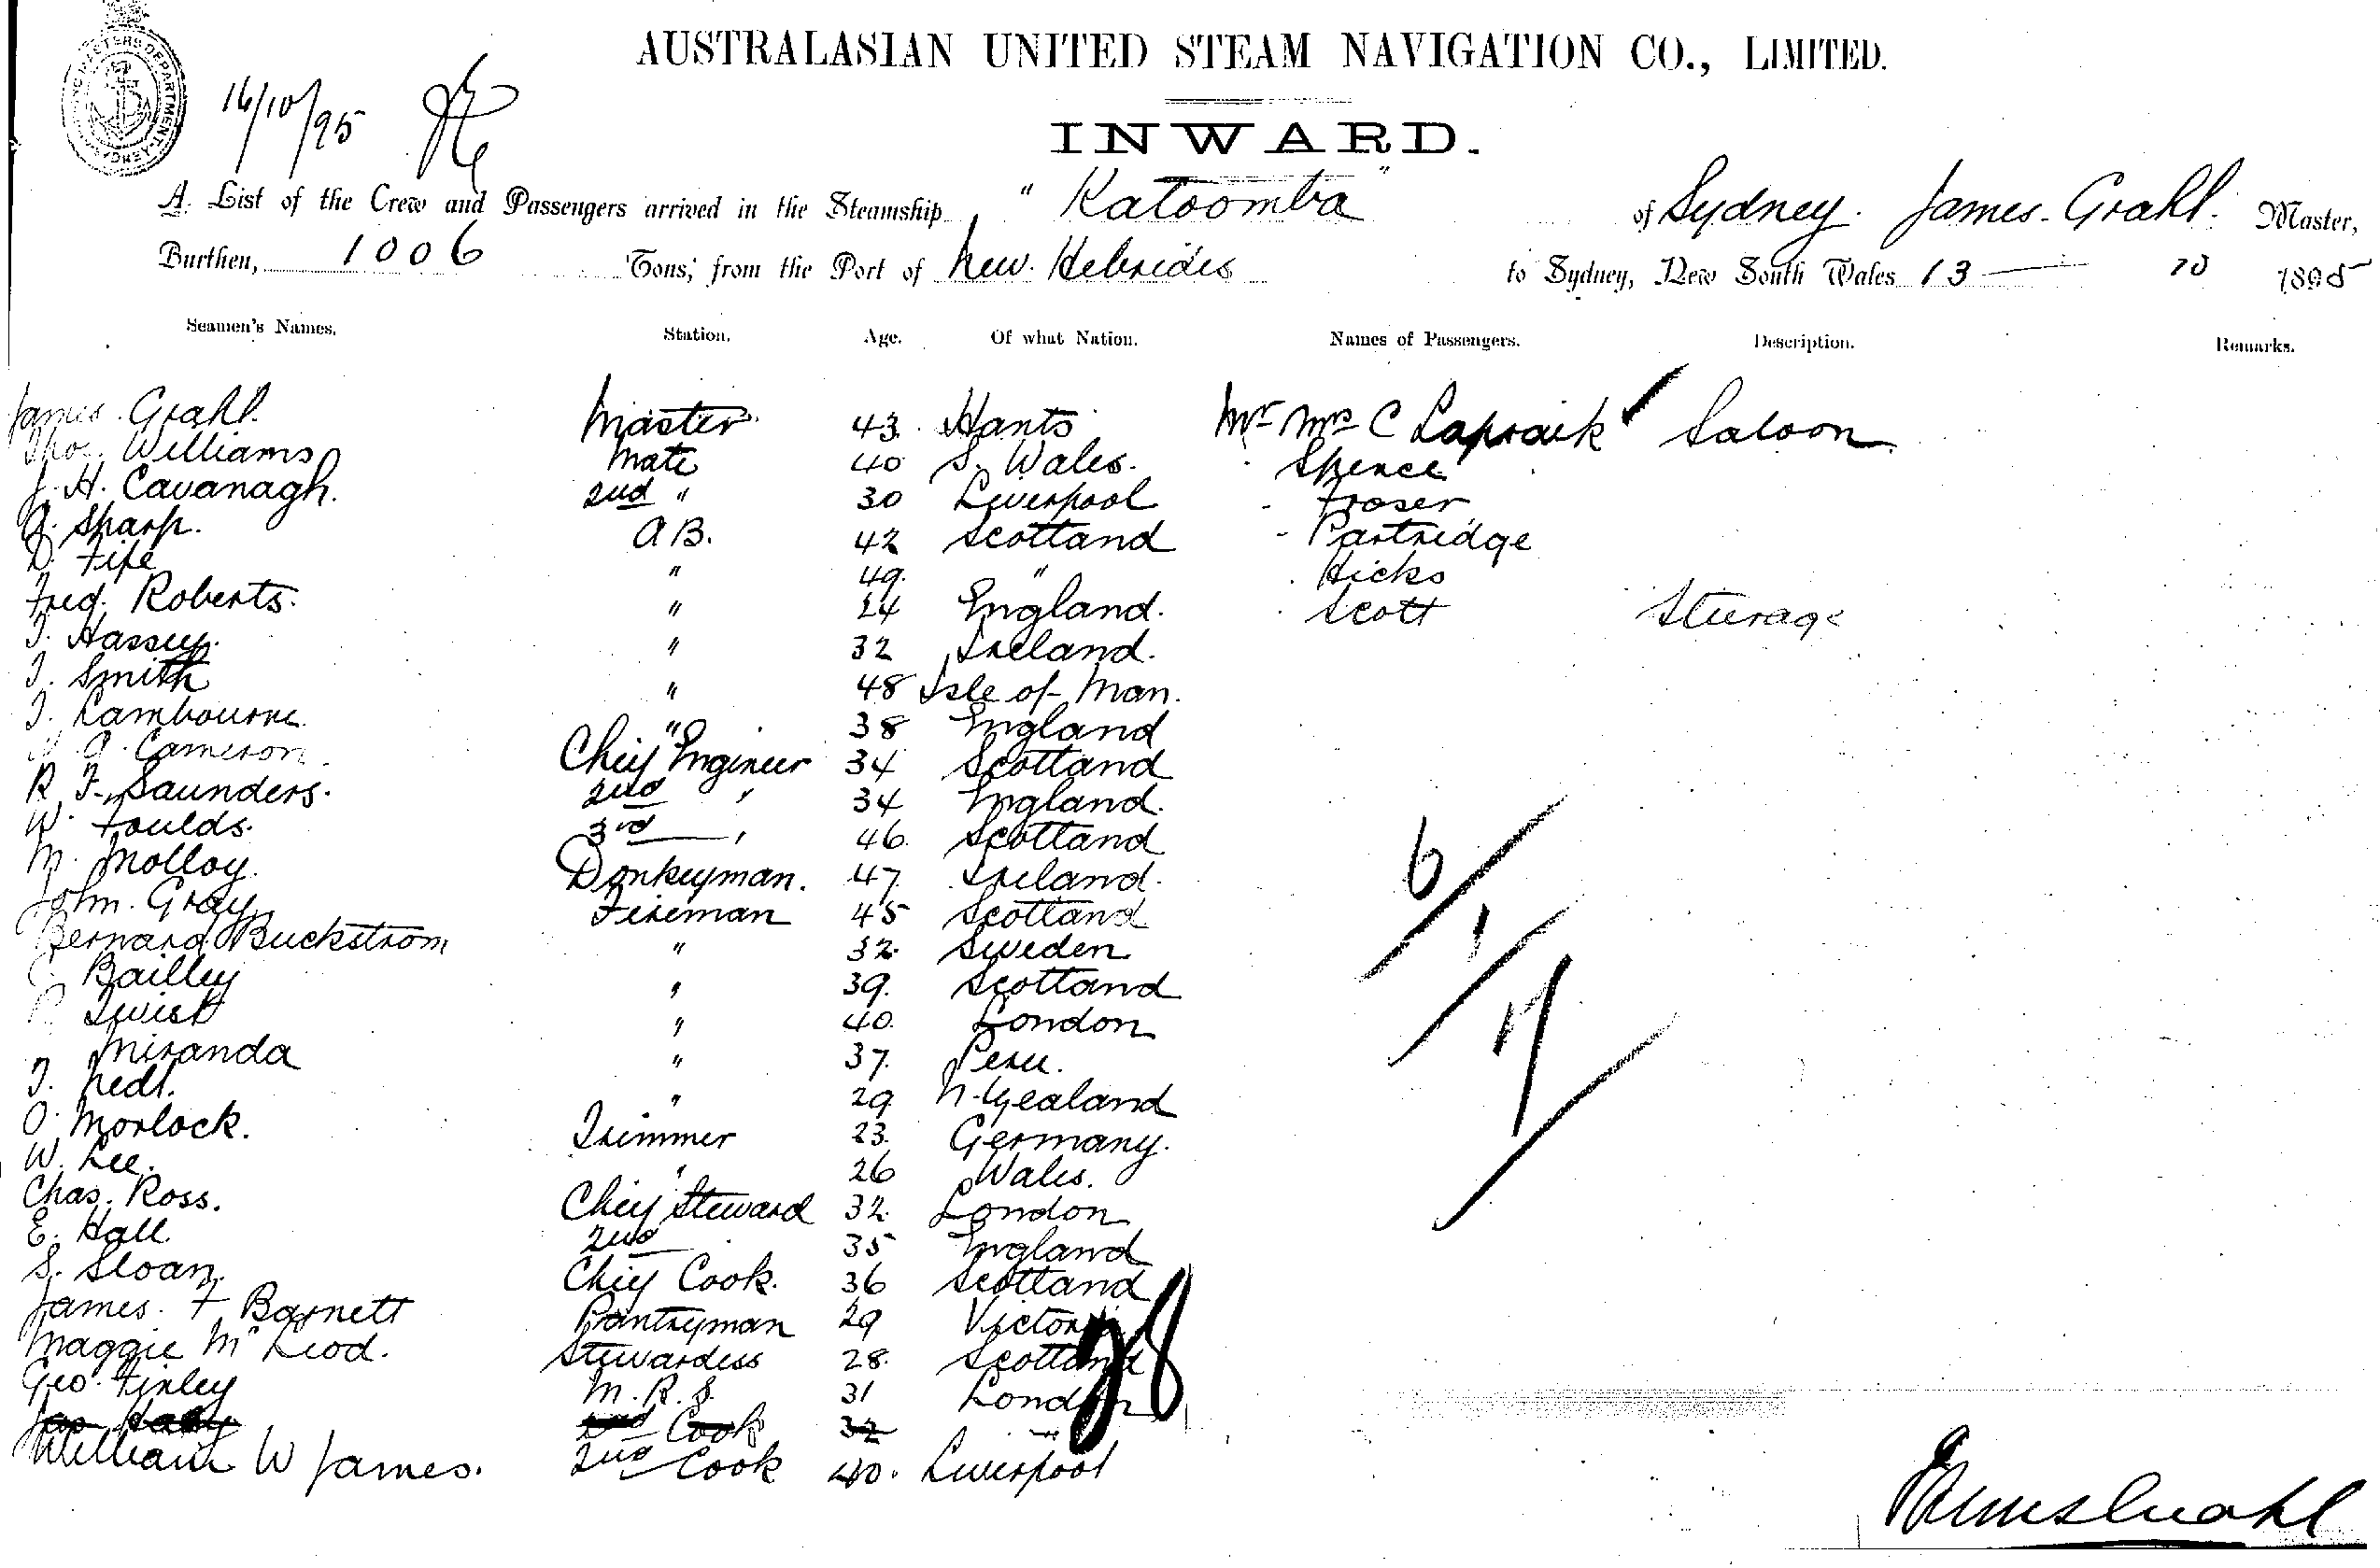 AUSTRALASIAN UNITED STEAM NAVIGATION CO., LIMITED.
16/10/95
INWARD.
A List of the Crew and Passengers arrived in the Steamship "Katoomba" of Sydney. James Grahl. Master,
Burthen, 1006 Tons, from the Port of New Hebrides to Sydney, New South Wales 13 — 10 1895
Seamen's Names. Station. Age. Of what Nation. Names of Passengers. Description. Remarks.
James Grahl. Master 43 Hants Mr Mrs C Lapraik Saloon
Thos. Williams Mate 40 S. Wales. Spence
J. H. Cavanagh. 2nd " 30 Liverpool Froser
Sharp. A B. 42 Scotland Partridge
D. Fife " 49. " Hicks
Fred. Roberts. " 24 England. Scott Sturage
J. Hassey. " 32 Ireland.
J. Smith " 48 Isle of Man.
J. Lambourne. " 38 England
A. Cameron Chief Engineer 34 Scotland
R. F. Saunders. 2nd " 34 England.
W. Foulds. 3rd " 46. Scotland
M. Molloy. Donkeyman. 47. Ireland.
John. Gray Fireman 45 Scotland
Bernard Buckstrom " 32. Sweden
C. Bailley " 39. Scotland
Twist " 40. London
Miranda " 37. Peru.
J. " 29 N. Zealand
O. Morlock. Trimmer 23. Germany.
W. Lee. " 26 Wales.
Chas. Ross. Chief Steward 32. London
E. Hall. 2nd 35 England
S. Sloan. Chief Cook. 36 Scotland
James. F Barnett Pantryman 29 Victoria
Maggie McLeod. Stewardess 28. Scotland
Geo. Finley M.R.S. 31 London
Cook 32
William W James. 2nd Cook 40. Liverpool
6/1/7/
28
James Grahl